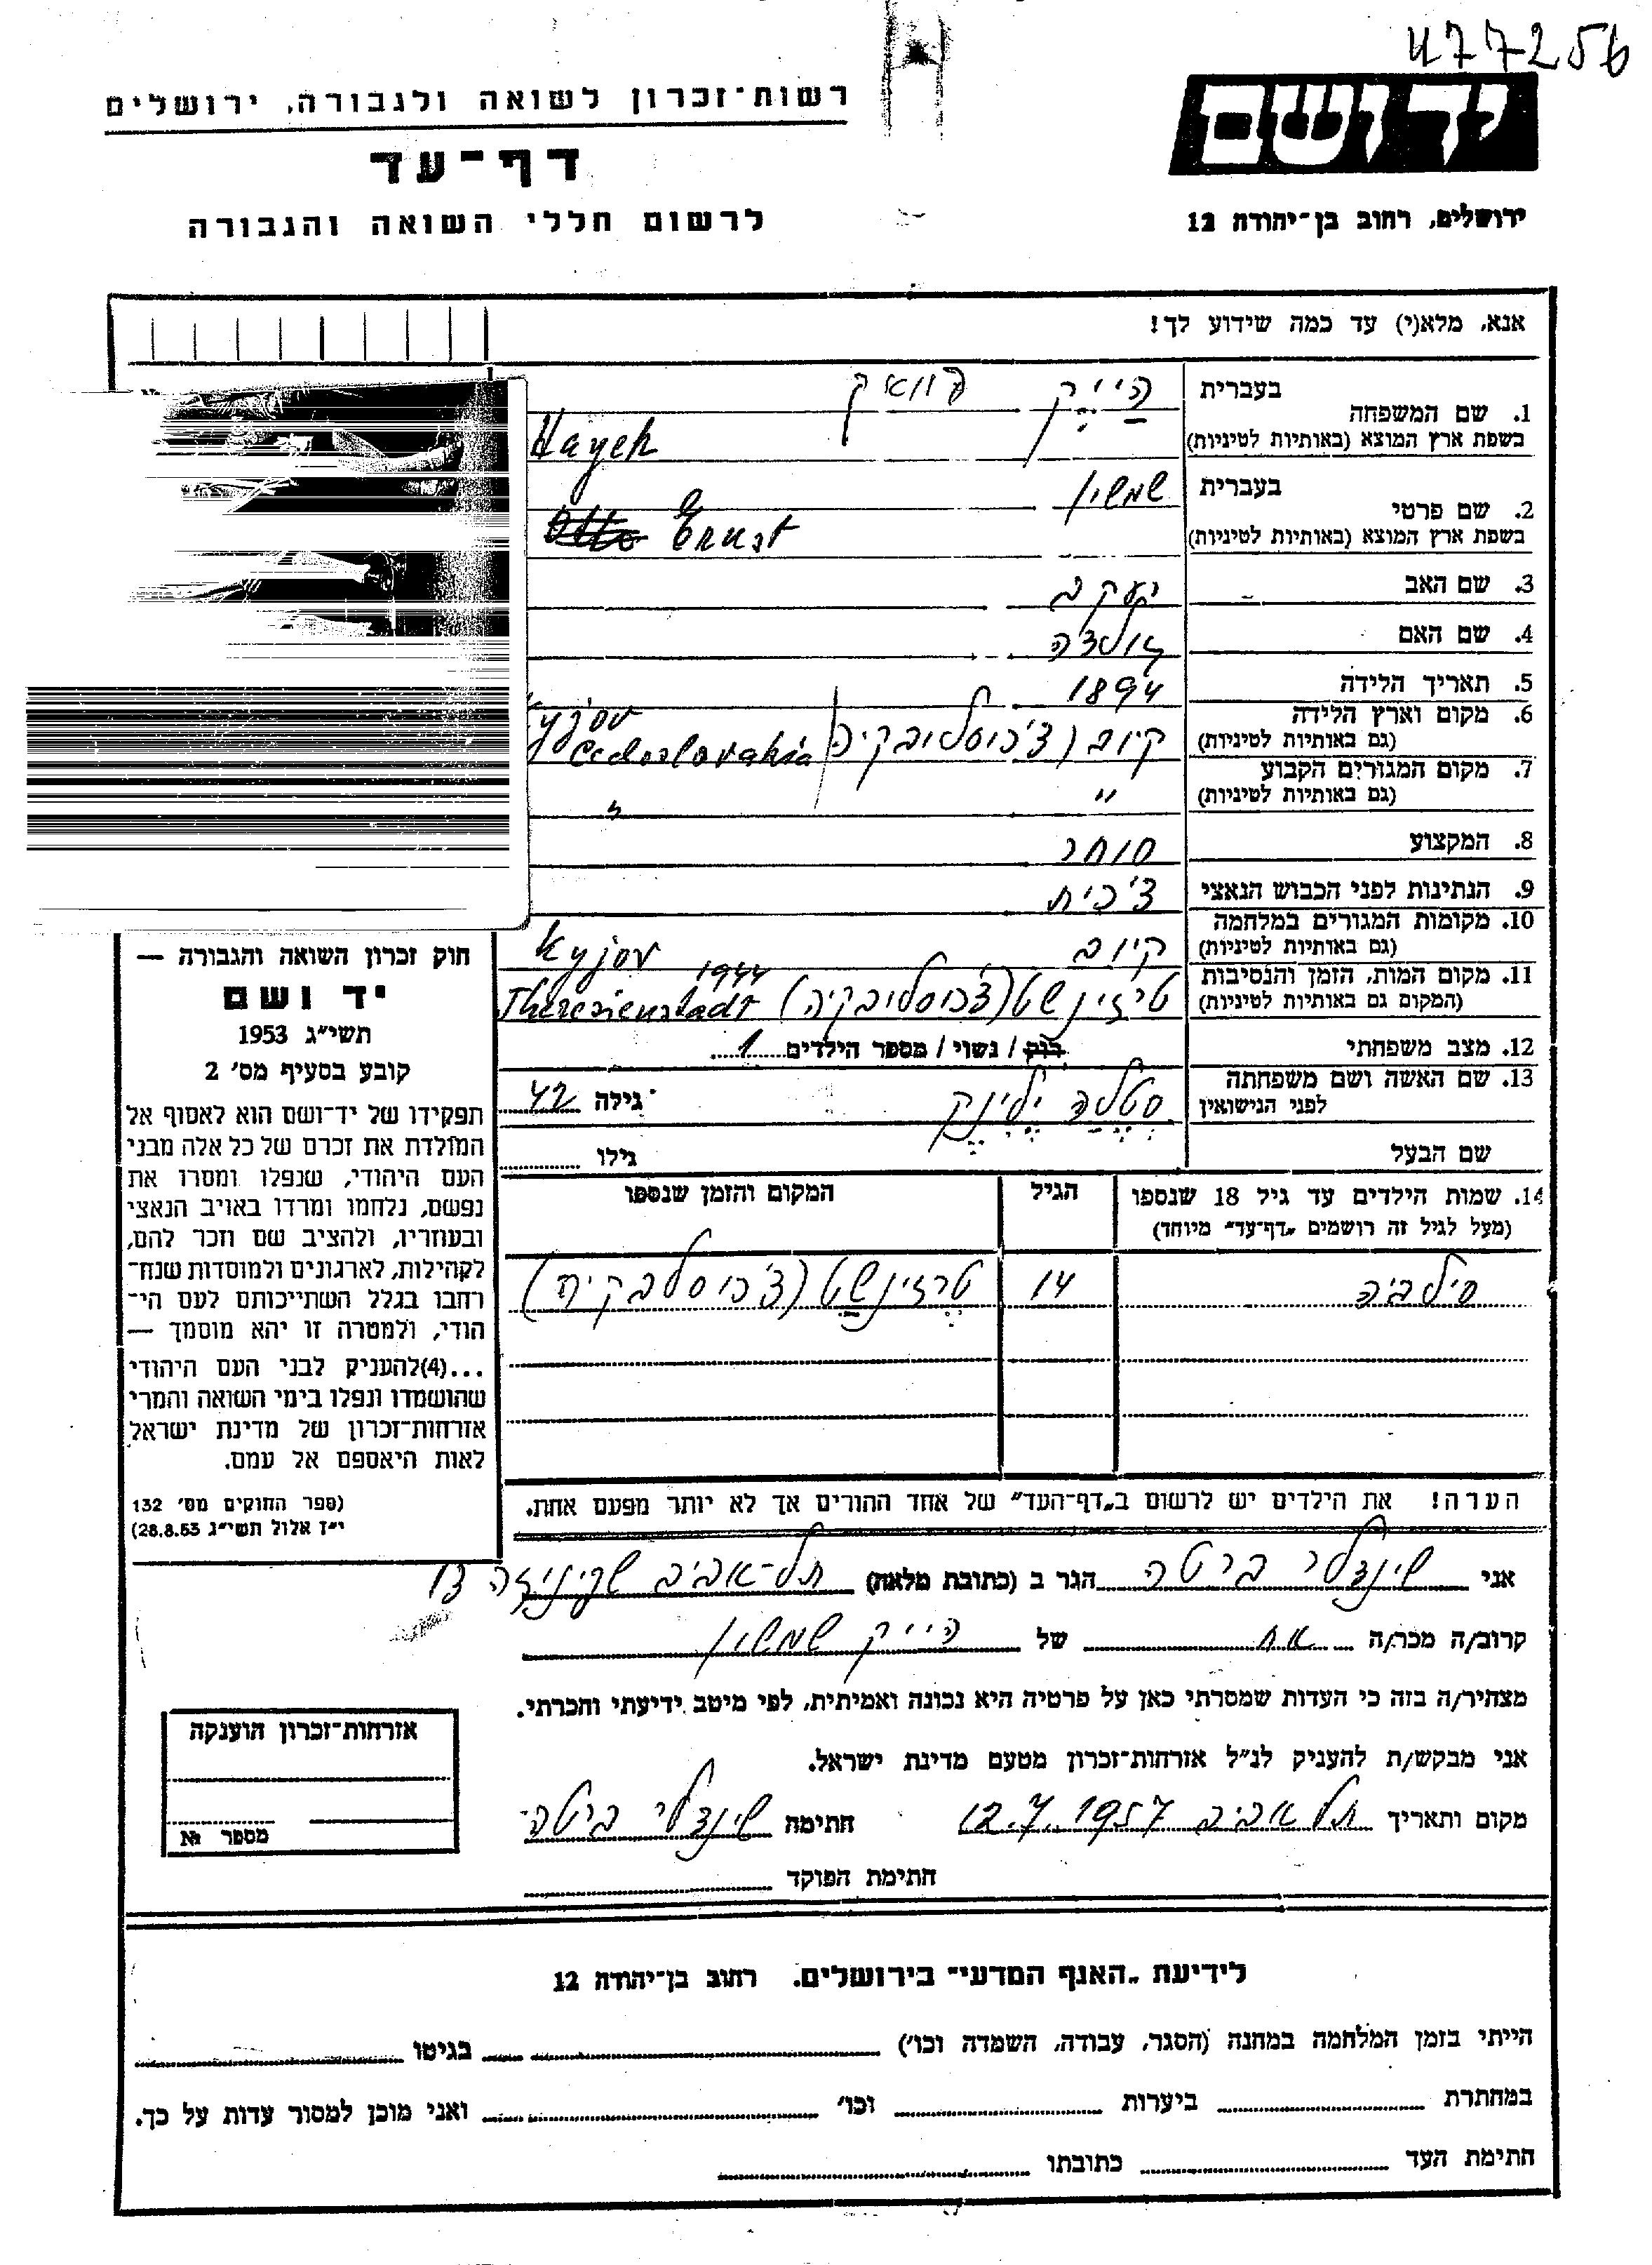 477256
יד ושם
ירושלים, רחוב בן־יהודה 12
רשות־זכרון לשואה ולגבורה, ירושלים
דף־עד
לרשום חללי השואה והגבורה
אנא, מלא(י) עד כמה שידוע לך!
1. שם המשפחה בעברית הייק
בשפת ארץ המוצא (באותיות לטיניות) Hayek
2. שם פרטי בעברית שמשון
בשפת ארץ המוצא (באותיות לטיניות) Ernst
3. שם האב יעקב
4. שם האם
5. תאריך הלידה 1894
6. מקום וארץ הלידה קיוב (צ'כוסלובקיה) Kyjov
(גם באותיות לטיניות)
7. מקום המגורים הקבוע " "
(גם באותיות לטיניות)
8. המקצוע סוחר
9. הנתינות לפני הכבוש הנאצי צ'כית
10. מקומות המגורים במלחמה קיוב Kyjov
(גם באותיות לטיניות)
11. מקום המות, הזמן והנסיבות טרזינשט (צ'כוסלובקיה) Theresienstadt 1944
(המקום גם באותיות לטיניות)
12. מצב משפחתי רוק / נשוי / מספר הילדים 1
13. שם האשה ושם משפחתה סטלה ילינק גילה 42
לפני הנישואין
שם הבעל גילו
14. שמות הילדים עד גיל 18 שנספו הגיל המקום והזמן שנספו
(מעל לגיל זה רושמים „דף־עד" מיוחד)
סילביה 14 טרזינשט (צ'כוסלבקיה)
הערה! את הילדים יש לרשום ב„דף־העד" של אחד ההורים אך לא יותר מפעם אחת.
חוק זכרון השואה והגבורה —
יד ושם
תשי"ג 1953
קובע בסעיף מס' 2
תפקידו של יד־ושם הוא לאסוף אל
המולדת את זכרם של כל אלה מבני
העם היהודי, שנפלו ומסרו את
נפשם, נלחמו ומרדו באויב הנאצי
ובעוזריו, ולהציב שם וזכר להם,
לקהילות, לארגונים ולמוסדות שנח־
רחבו בגלל השתייכותם לעם הי־
הודי, ולמטרה זו יהא מוסמך —
...(4)להעניק לבני העם היהודי
שהושמדו ונפלו בימי השואה והמרי
אזרחות־זכרון של מדינת ישראל
לאות היאספם אל עמם.
(ספר החוקים מס' 132
י"ז אלול תשי"ג 28.8.53)
אני שינדלר ברטה הגר ב (כתובת מלאה) תל-אביב
קרוב/ה מכר/ה אח של הייק שמשון
מצהיר/ה בזה כי העדות שמסרתי כאן על פרטיה היא נכונה ואמיתית, לפי מיטב ידיעתי והכרתי.
אני מבקש/ת להעניק לנ"ל אזרחות־זכרון מטעם מדינת ישראל.
מקום ותאריך תל אביב 12.7.1957 חתימה שינדלר ברטה
חתימת הפוקד
אזרחות־זכרון הוענקה
מספר №
לידיעת „האגף המדעי" בירושלים, רחוב בן־יהודה 12
הייתי בזמן המלחמה במחנה (הסגר, עבודה, השמדה וכו') בגיטו
במחתרת ביערות וכו' ואני מוכן למסור עדות על כך.
חתימת העד כתובתו